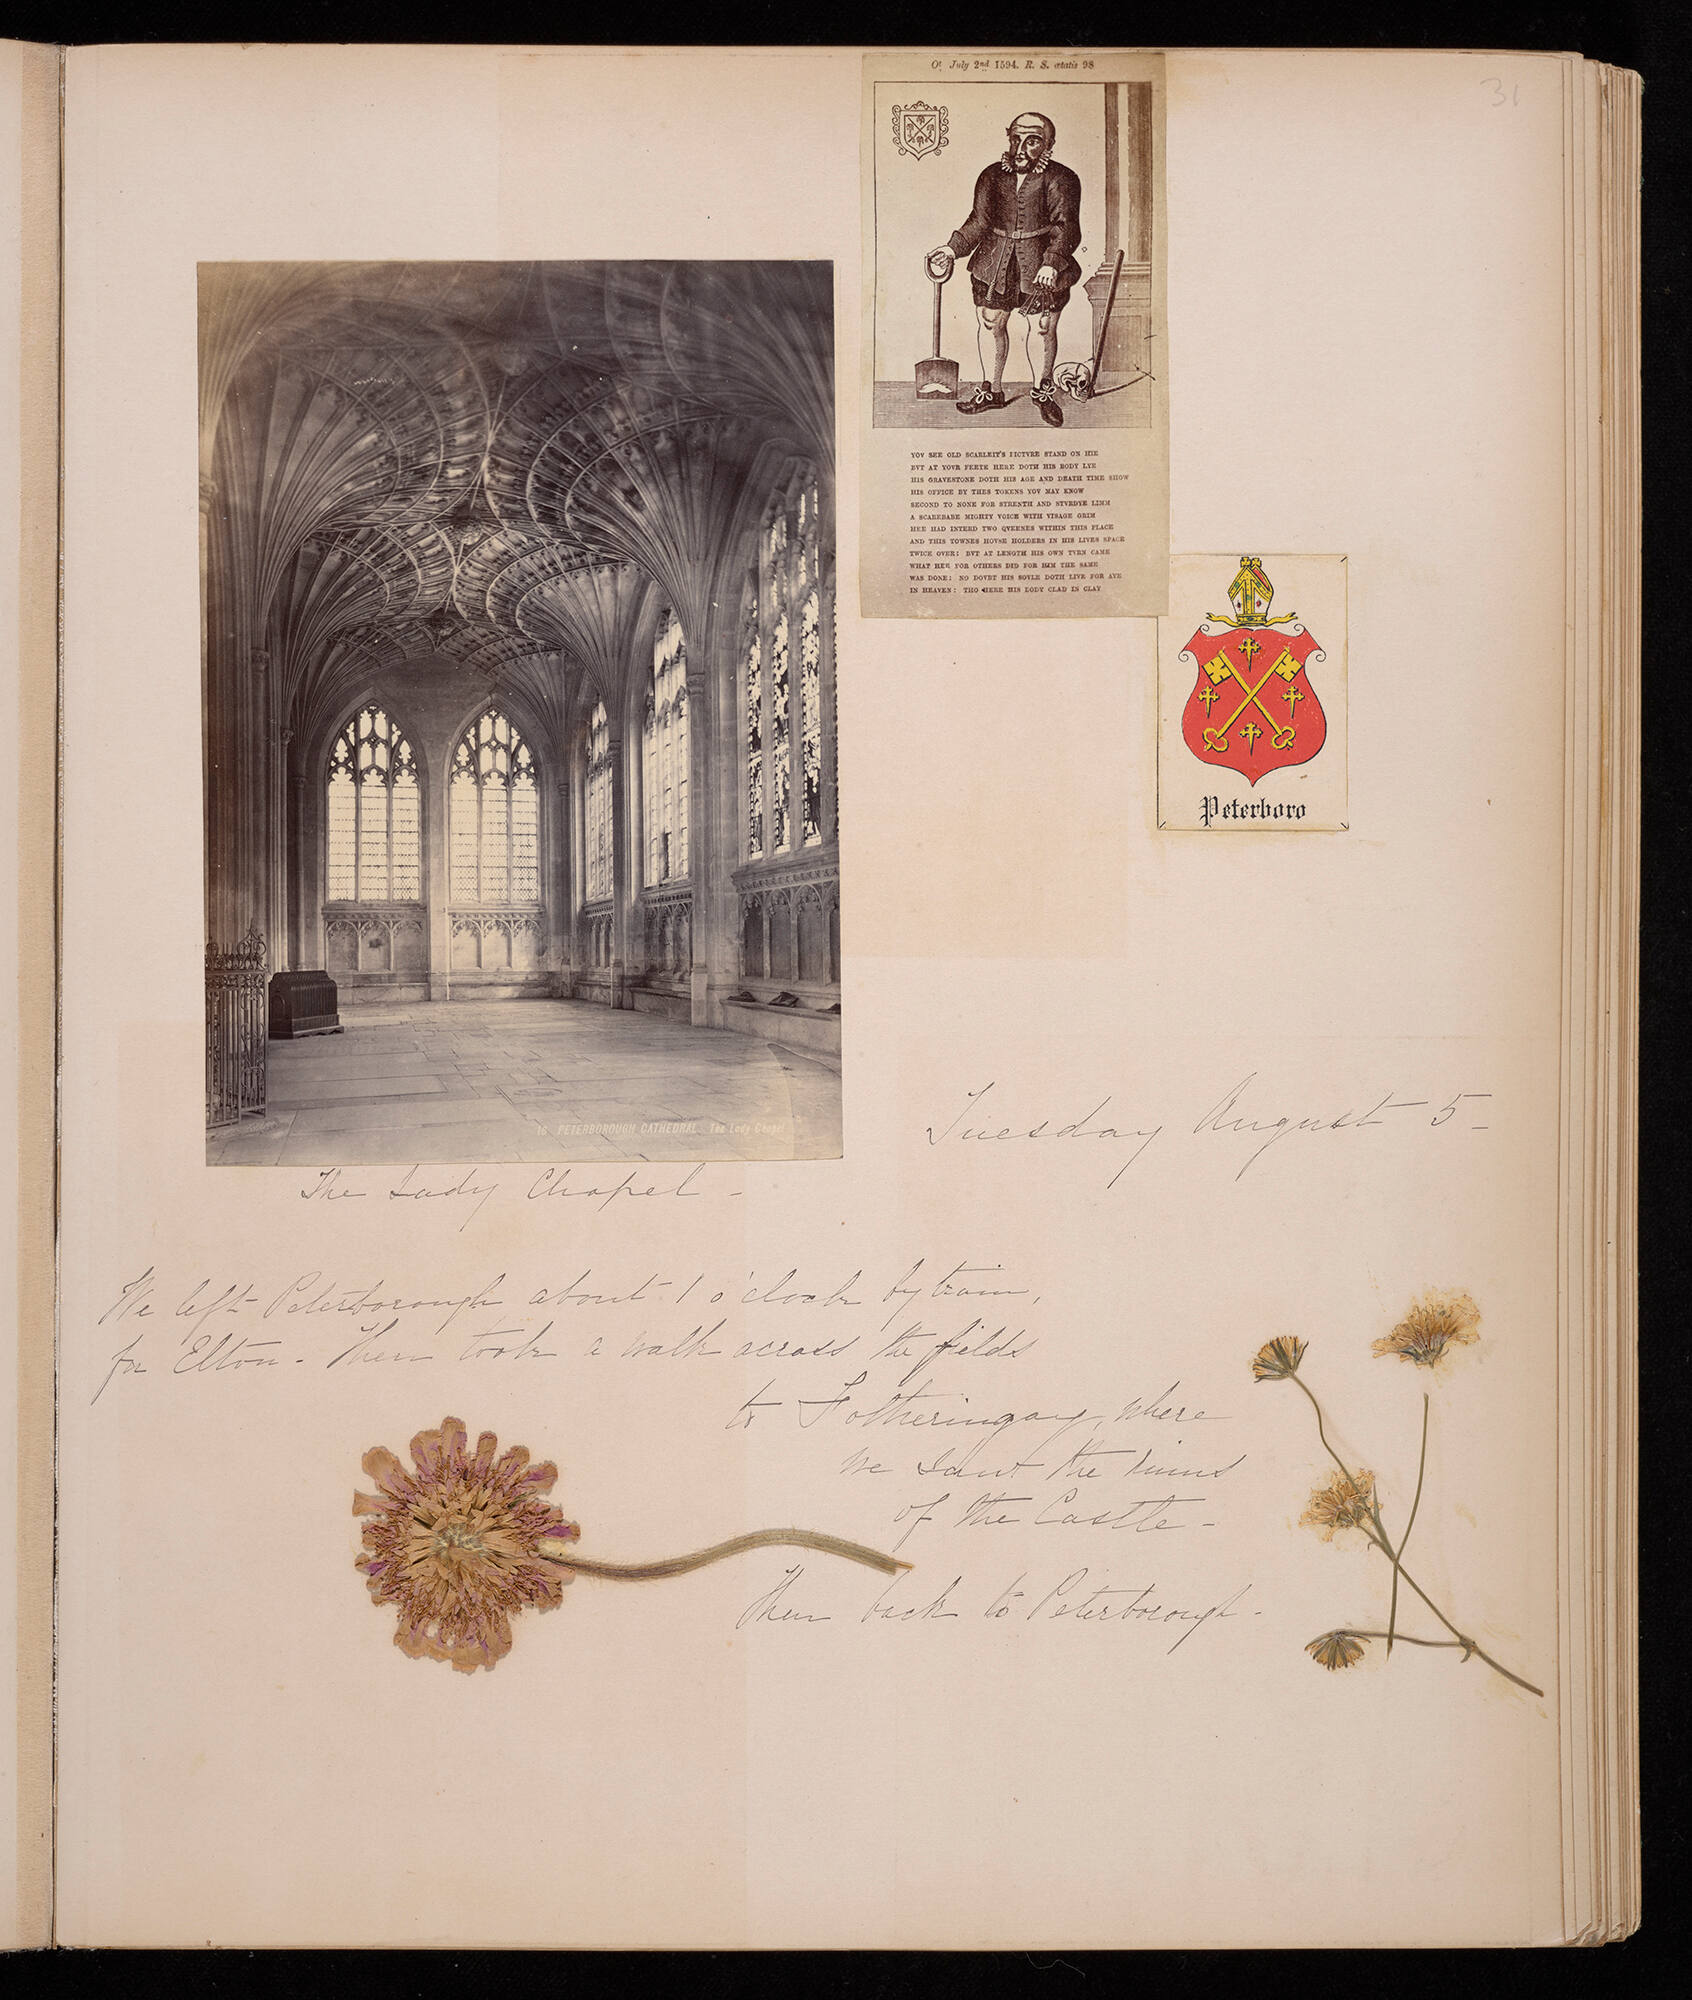 31
Oṭ July 2nd 1594. R. S. ætatis 98
YOV SEE OLD SCARLEIT'S PICTVRE STAND ON HIE
BVT AT YOVR FEETE HERE DOTH HIS BODY LYE
HIS GRAVESTONE DOTH HIS AGE AND DEATH TIME SHOW
HIS OFFICE BY THES TOKENS YOV MAY KNOW
SECOND TO NONE FOR STRENTH AND STVRDYE LIMM
A SCAREBABE MIGHTY VOICE WITH VISAGE GRIM
HEE HAD INTERD TWO QVEENES WITHIN THIS PLACE
AND THIS TOWNES HOVSE HOLDERS IN HIS LIVES SPACE
TWICE OVER: BVT AT LENGTH HIS OWN TVRN CAME
WHAT HEE FOR OTHERS DID FOR HIM THE SAME
WAS DONE: NO DOVBT HIS SOVLE DOTH LIVE FOR AYE
IN HEAVEN: THO HERE HIS BODY CLAD IN CLAY
Peterboro
16 PETERBOROUGH CATHEDRAL. The Lady Chapel
The Lady Chapel -
Tuesday August 5 -
We left Peterborough about 1 o'clock by train,
for Elton - Then took a walk across the fields
to Fotheringay, where
we saw the ruins
of the Castle -
Then back to Peterborough -